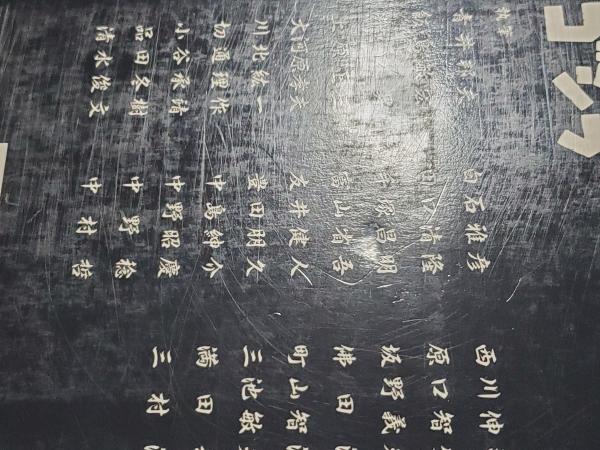 執筆
青井邦夫
大河原孝夫
川北紘一
切通理作
小谷承靖
品田冬樹
清水俊文
白石雅彦
田口清隆
手塚昌明
冨山省吾
友井健人
豊田朋久
中島紳介
中野昭慶
中野稔
中村哲
西川伸
原口智
坂野義
佛田
町山智
三池敏
満田
三村